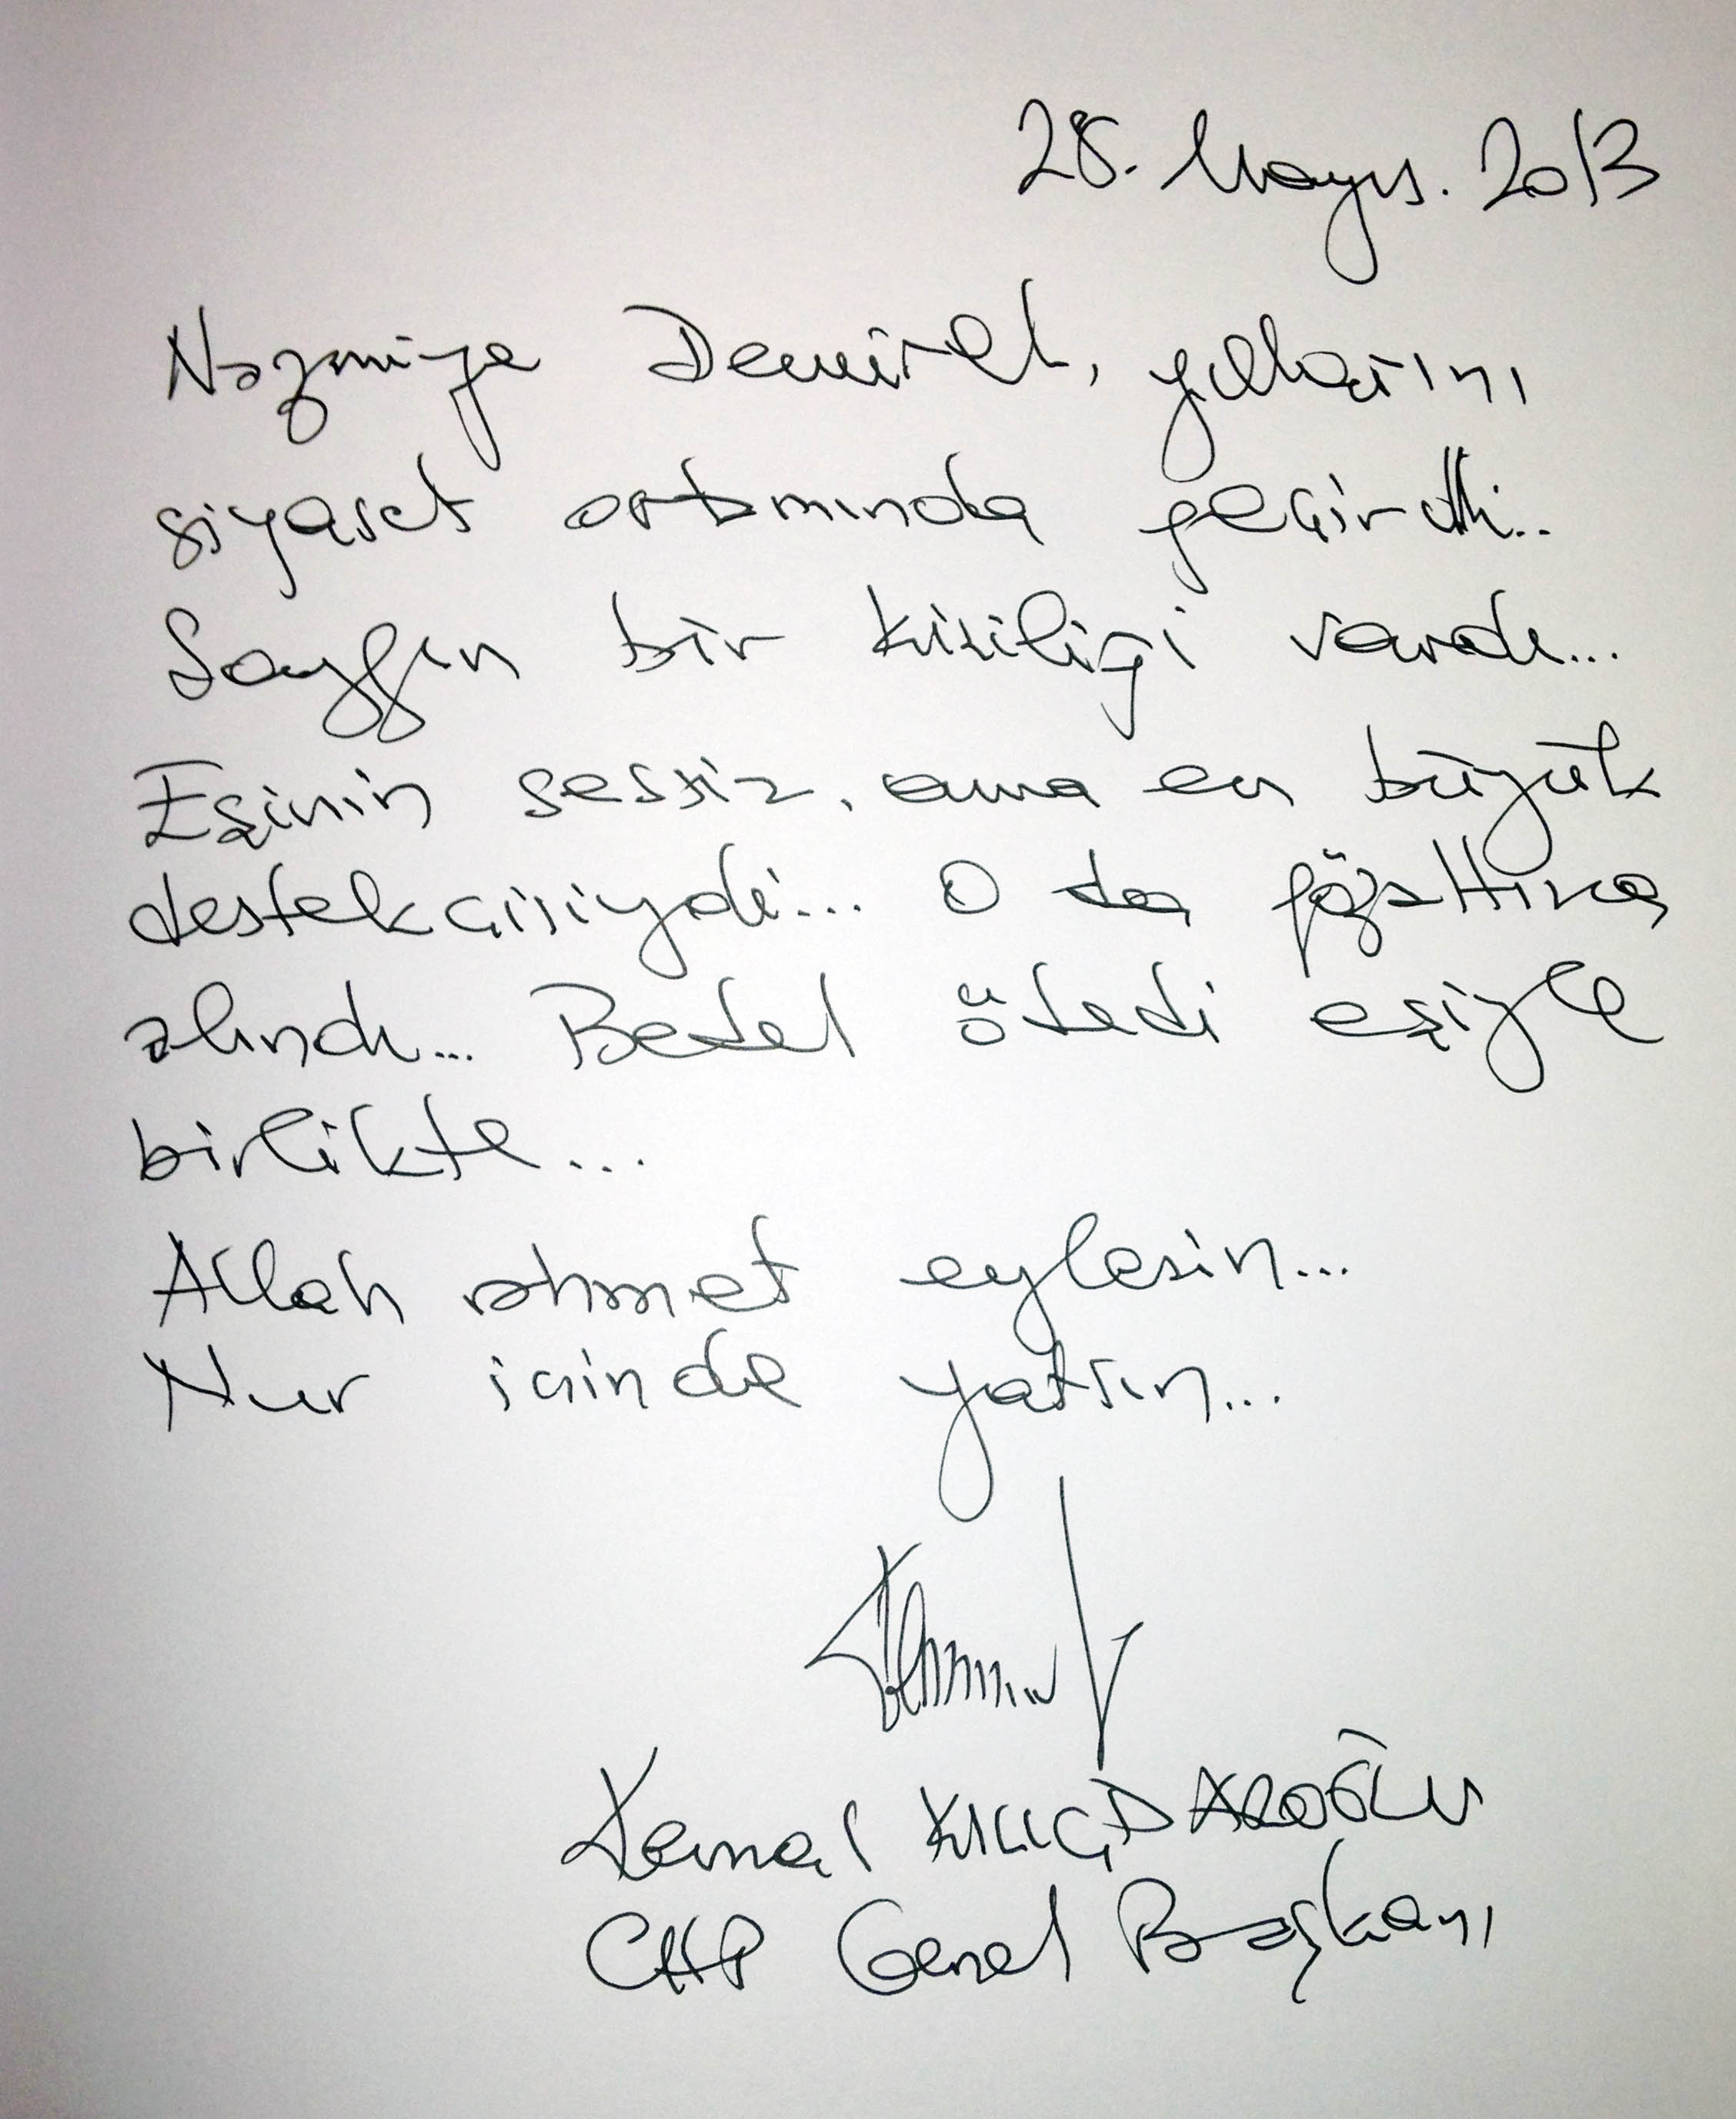 28. Mayıs. 2013
Nazmiye Demirel, yıllarını
siyaset ortamında geçirdi..
Saygın bir kişiliği vardı...
Eşinin sessiz, ama en büyük
destekçisiydi... O da gözaltına
alındı... Bedel ödedi eşiyle
birlikte...
Allah rahmet eylesin...
Nur içinde yatsın...
Kemal KILIÇDAROĞLU
CHP Genel Başkanı